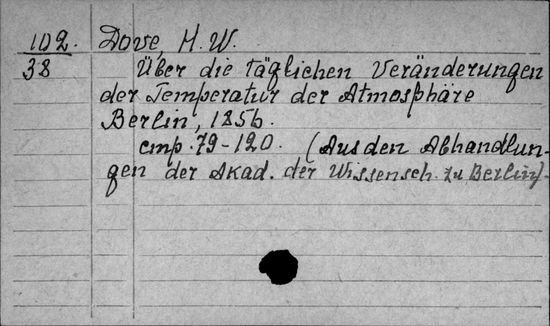 102. Dove, H. W.
38 Über die täglichen Veränderungen
der Temperatur der Atmosphäre
Berlin, 1856.
стр. 79-120. (Aus den Abhandlun-
gen der Akad. der Wissensch. zu Berlin).